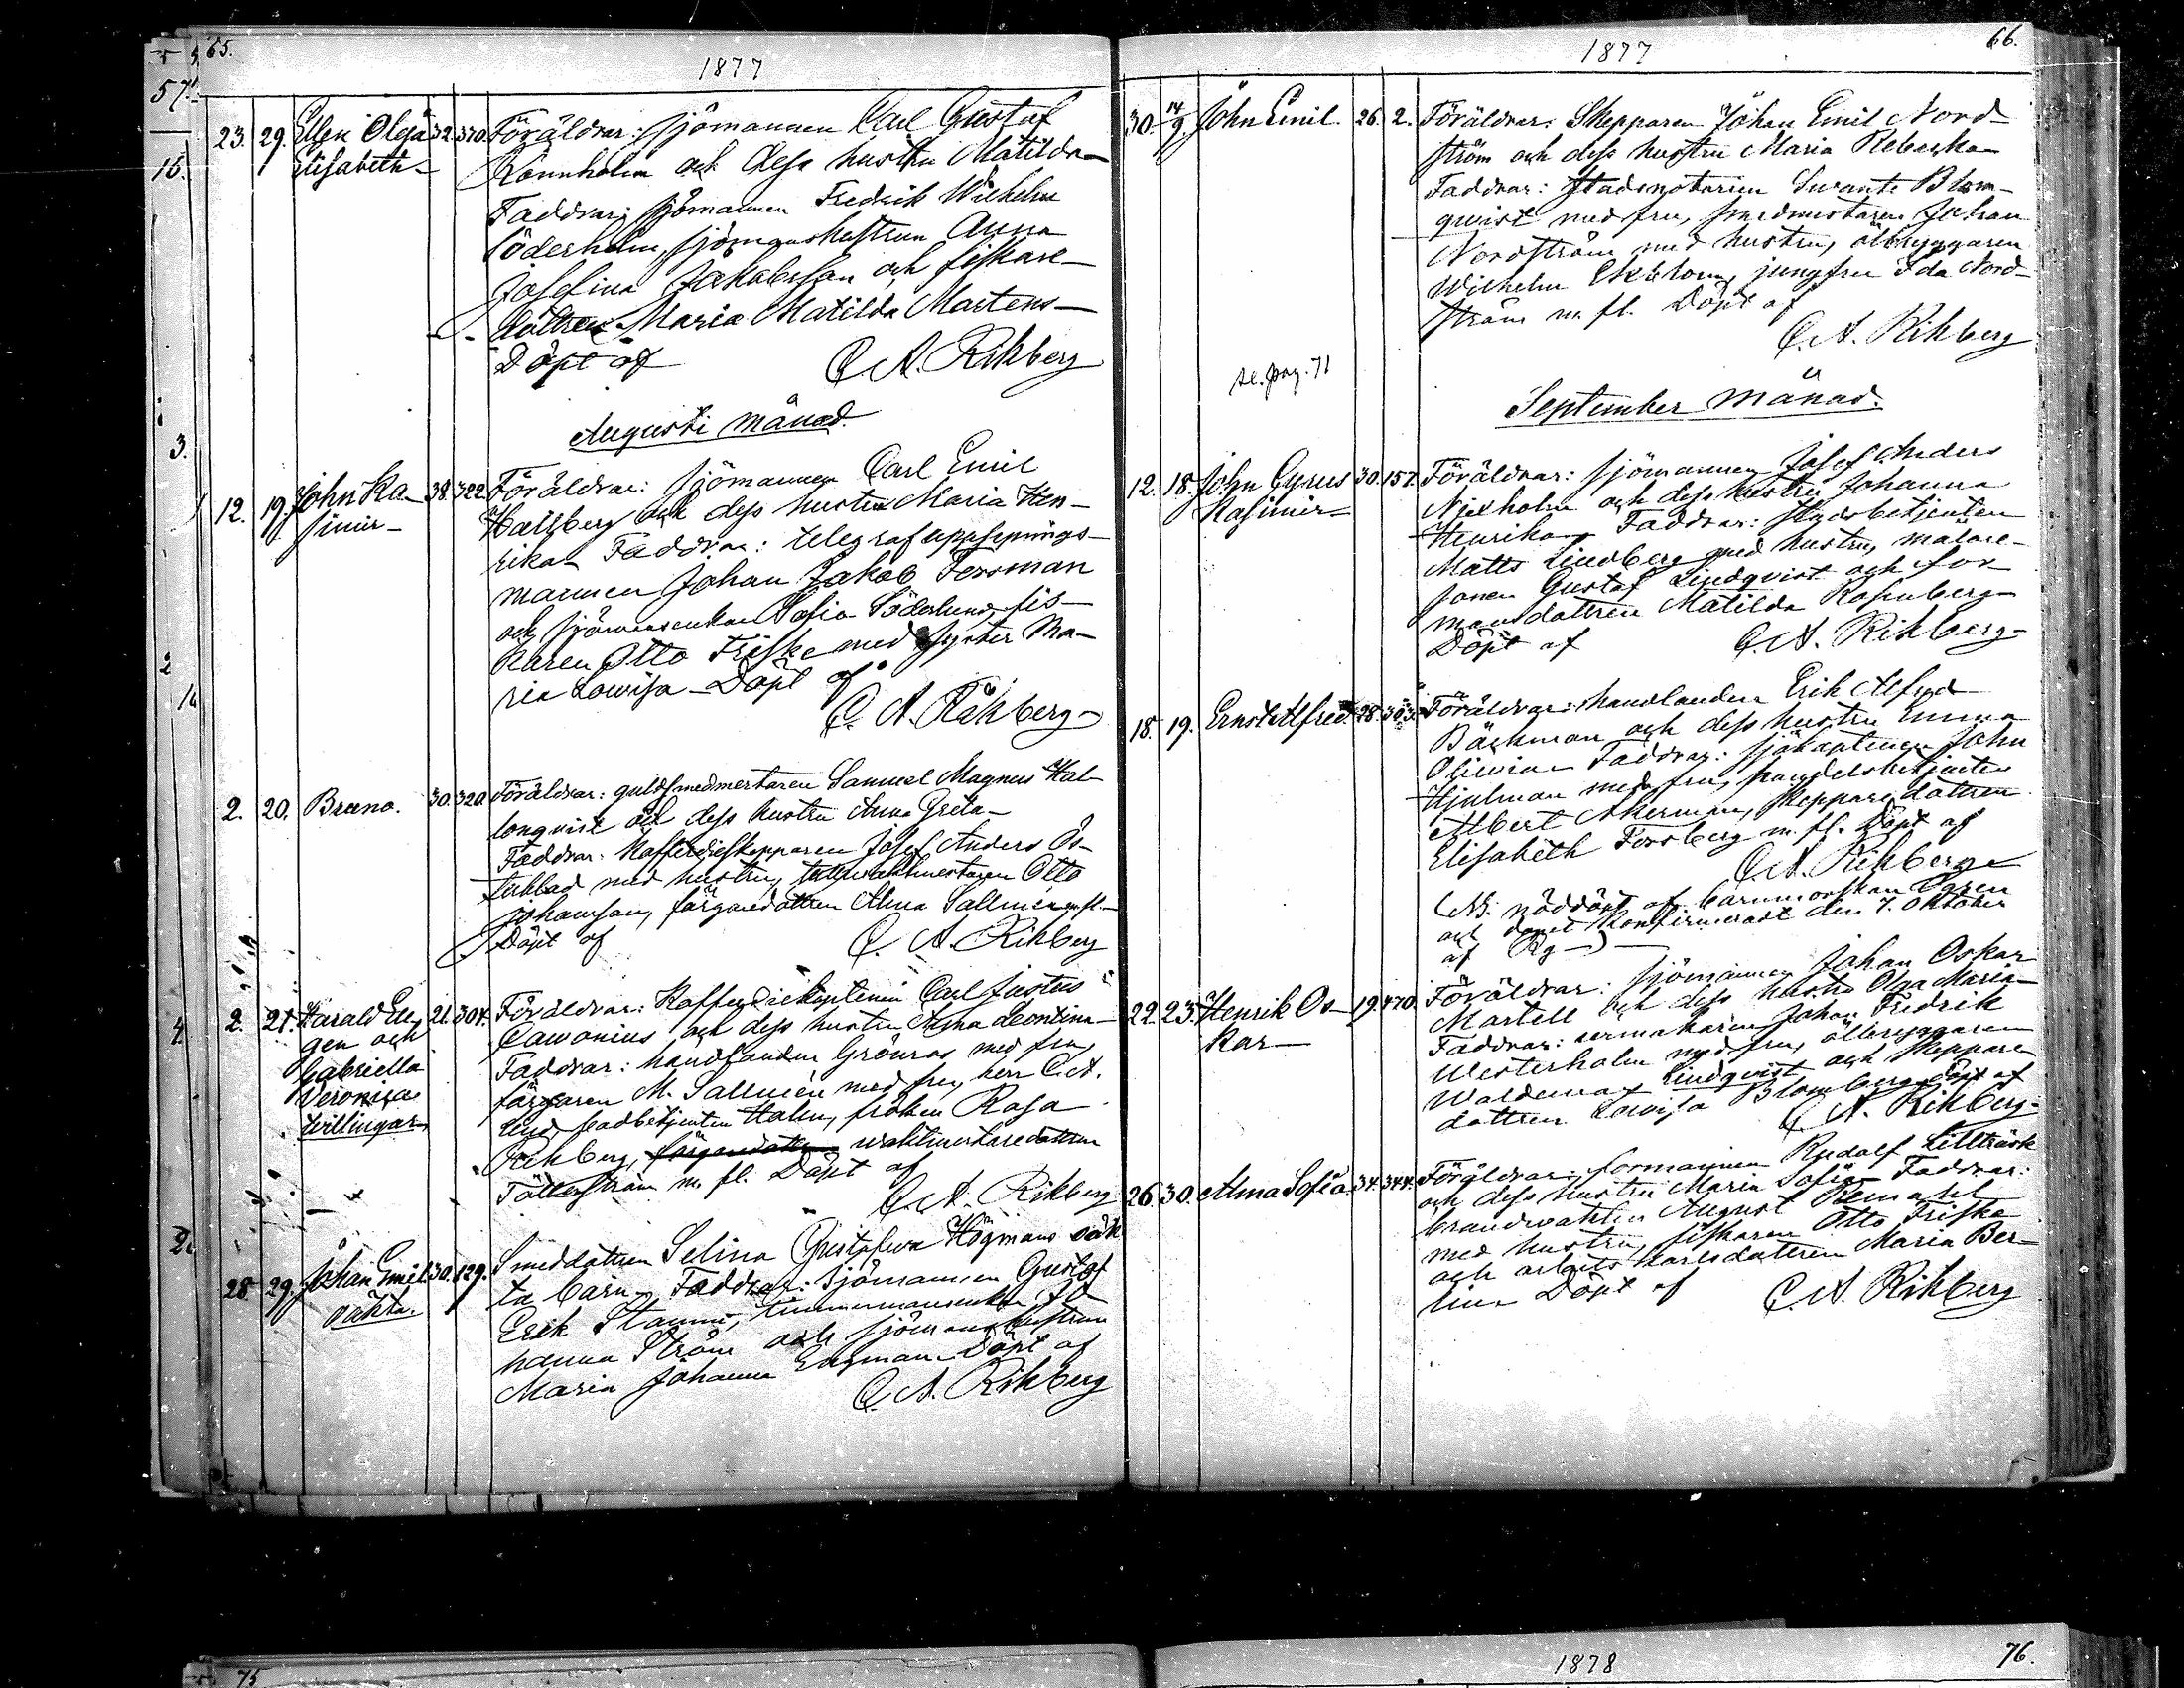 65.
1877
57.
15.
3.
2
4.
2.
23. 29. Ellen Olga 32. 370. Föräldrar: sjömannen Carl Gustaf
Elisabeth Rönnholm och dess hustru Matilda
Faddrar: sjömannen Fredrik Wilhelm
Söderholm, sjömanshustrun Anna
Josefina Jakobsson och fiskare
dottren Maria Matilda Martens
Döpt af C. A. Rikberg
Augusti månad.
12. 19. John Ka- 38. 322. Föräldrar: sjömannen Carl Emil
simir Hallberg och dess hustru Maria Hen-
rika Faddrar: telegrafuppsynings-
mannen Johan Jakob Forsman
och Sofia Söderlund, fis-
karen Otto Friske med syster Ma-
ria Lowisa Döpt af
C. A. Rikberg
2. 20. Bruno. 30. 320. Föräldrar: guldsmedmestaren Samuel Magnus Hal-
lonqvist och dess hustru Anna Greta
Faddrar: Kofferdieskepparen Josef Anders Ös-
terblad med hustru, Otto
Johansson, färgaredottren Alma Sallmén m. fl.
Döpt af C. A. Rikberg
2. 21. Harald Eu- 21. 304. Föräldrar: Kofferdiekaptenen Carl Justus
gen och Cawonius och dess hustru Anna Leontina
Gabriella Faddrar: handlanden Grönros med fru,
Veronica färgaren M. Sallmén med fru, herr C. A.
twillingar betjenten Halm, fröken Rosa
Rikberg, färgaredottren waktmestaredottren
m. fl. Döpt af
C. A. Rikberg
28 29. Johan Emil 30. 129. Smeddottren Selina Gustafwa Högmans oäk-
oäkta. ta barn Faddrar: Sjömannen Gustaf
Erik Stamm, timmermansenkan Jo-
hanna Ström och sjömanshustrun
Maria Johanna Engman Döpt af
C. A. Rikberg
1877
66.
30. 14/9. John Emil. 26. 2. Föräldrar: Skepparen Johan Emil Nord-
ström och dess hustru Maria Rebecka
Faddrar: stadsnotarien Swante Blom-
qwist med fru, smedmestaren Johan
Nordström med hustru, ölbryggaren
Wilhelm Ekblom, jungfru Ida Nord-
ström m. fl. Döpt af
C. A. Rikberg
se. pag. 71
September månad.
12. 18. John Cyrus 30. 157. Föräldrar: sjömannen Josef Anders
Kasimir och dess hustru Johanna
Henrika Faddrar:
Matts Lindberg med hustru, målare-
Gustaf Lindqvist och for-
mansdottren Matilda Rosenberg
Döpt af C. A. Rikberg
18. 19. Ernst Alfred. 28. 303. Föräldrar: handlanden Erik Alfred
Bäckman och dess hustru Emma
Oliwia Faddrar: sjökaptenen John
Hjulman med fru, handelsbetjenten
Albert Åkerman, skeppare dottren
Elisabeth Forsberg m. fl. Döpt af
C. A. Rikberg
(NB. nöddöpt af barnmorskan
och dopet konfirmeradt den 7. Oktober
af Rg)
22. 23. Henrik Os- 19. 470. Föräldrar: sjömannen Johan Oskar
kar Martell och dess hustru Olga Maria
Faddrar: urmakaren Johan Fredrik
Westerholm med fru, ölbryggaren
Waldemar Lindqvist och skeppare
dottren Lowisa Blomberg Döpt af
C. A. Rikberg
26. 30. Alma Sofia 34. 344. Föräldrar: formannen Rudolf Lillträsk
och dess hustru Maria Sofia Faddrar:
brandwakten August
med hustru, fiskaren Otto Friske
och arbetskarlsdottren Maria Ber-
lin Döpt af C. A. Rikberg
75
1878
76.